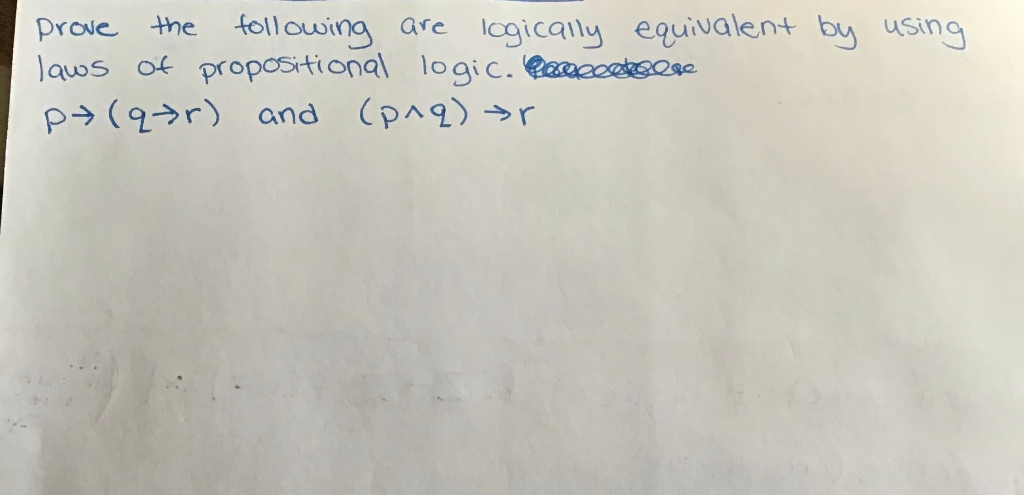 prove the following are logically equivalent by using
laws of propositional logic.
p→(q→r) and (p∧q)→r